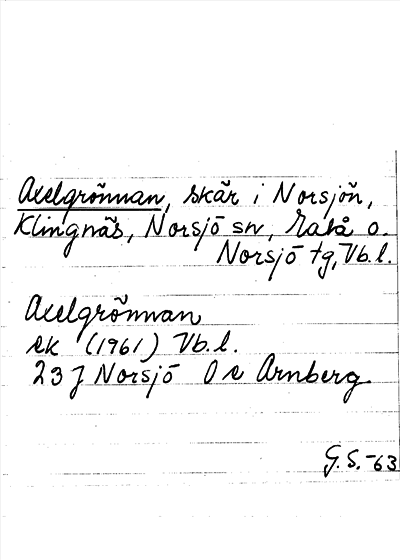 Axelgrönnan, skär i Norsjön,
Klingnäs, Norsjö sn, Malå o.
Norsjö tg, Vb.l.
Axelgrönnan
ek (1961) Vb.l.
23 J Norsjö O e Arnberg
G.S.-63